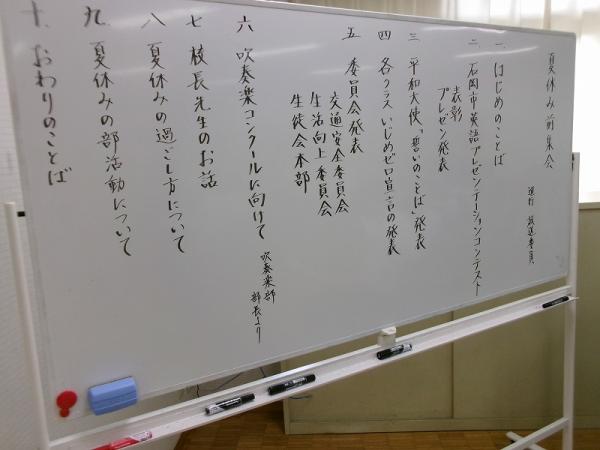 夏休み前集会
進行 放送委員
一、はじめのことば
二、石岡市英語プレゼンテーションコンテスト
表彰
プレゼン発表
三、平和大使「誓いのことば」発表
四、各クラスいじめゼロ宣言の発表
五、委員会発表
交通安全委員会
生活向上委員会
生徒会本部
六、吹奏楽コンクールに向けて
吹奏楽部
部長より
七、校長先生のお話
八、夏休みの過ごし方について
九、夏休みの部活動について
十、おわりのことば